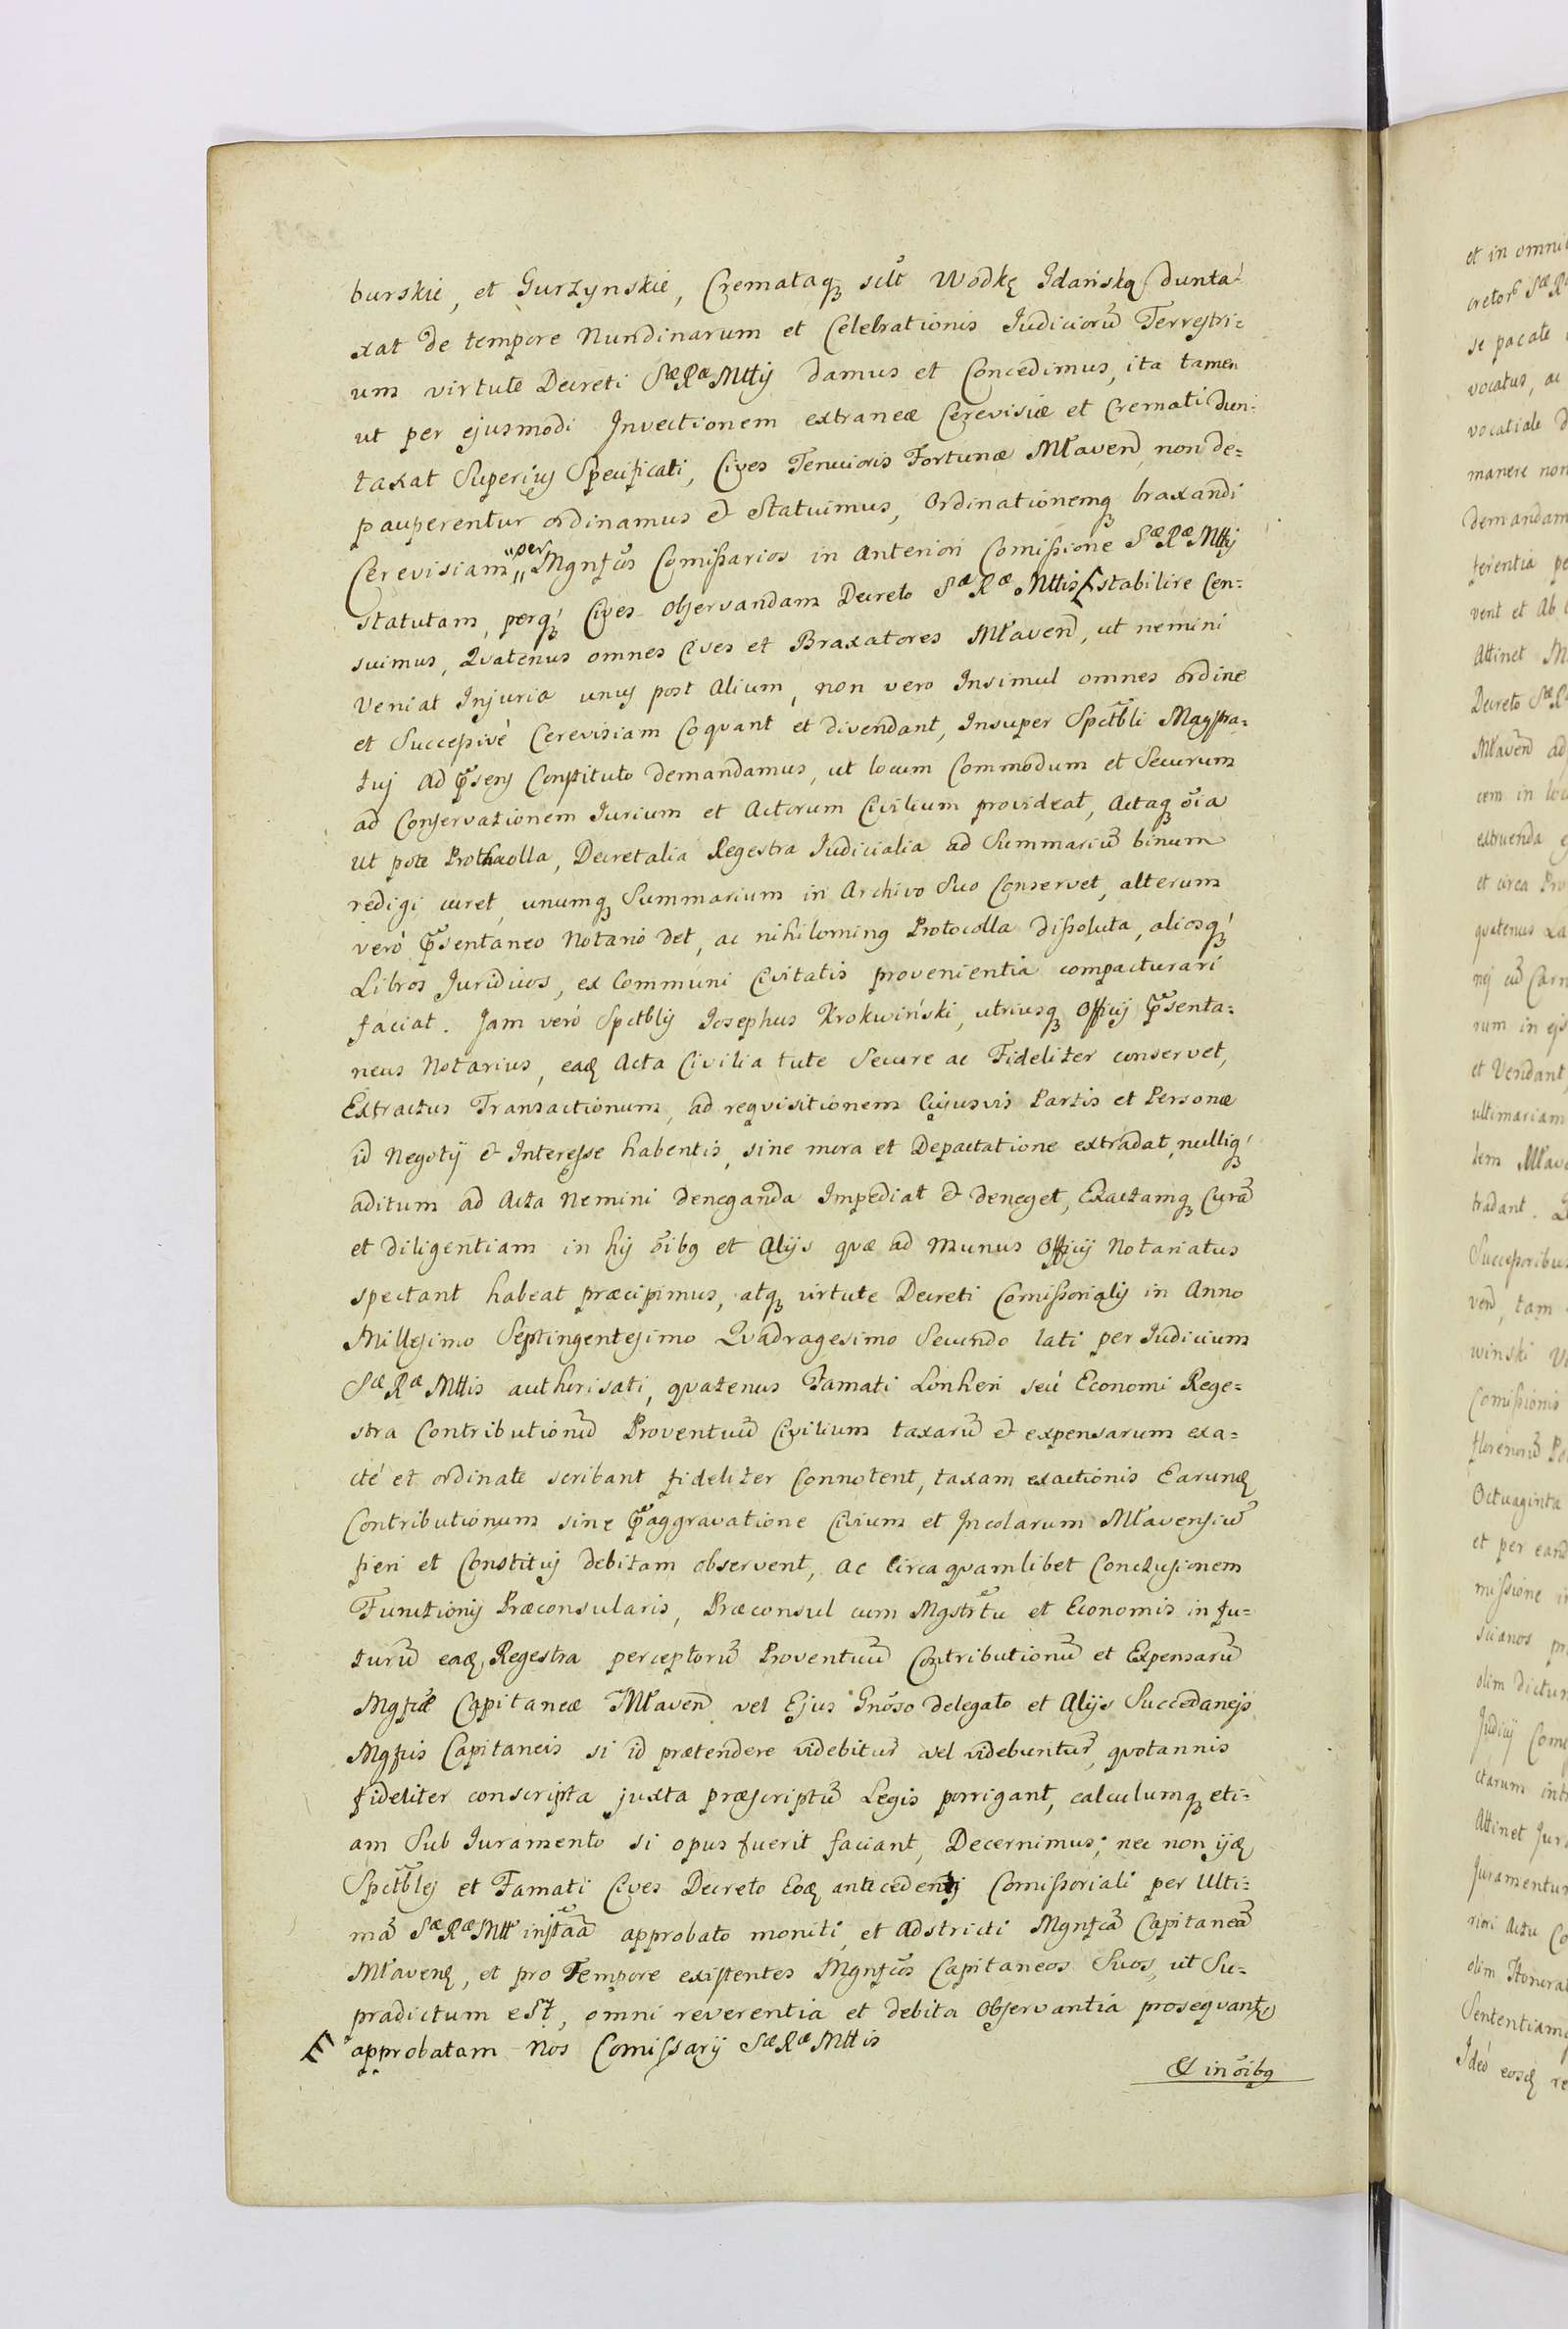 burskie, et Gurzynskie, Crematąq sclt Wodkę Gdańską dunta-
xat de tempore Nundinarum et Celebrationis Judiciorū Terrestri=
um virtute Decreti SæRæMttij damus et Concedimus, ita tamen
ut per ejusmodi Invectionem extraneæ Cerevisiæ et Cremati dun-
taxat Superiỹ Specificati, Cives Tenuioris Fortunæ Mławen̄ non de=
pauperentur ordinamus & Statuimus, Ordinationemq braxandi
Cerevisiam "per" Mgnfc̄os Comissarios in Anteriori Comissione SæRæMttij
statutam, perq́ Cives Observandam Decreto SæRæMttis E stabilire Cen=
suimus, Qvatenus omnes Cives et Braxatores Mławen̄, ut nemini
Veniat Injuria unus post Alium, non vero Insimul omnes ordine
et Successivè Cerevisiam Coquant et divendant, Insuper Spctbli Magstra-
tuj ad p̄sens Constituto demandamus, ut locum Commodum et Securum
ad Conservationem Jurium et Actorum Civilium provideat, Actaq o͞ia
Ut pote Prothocolla, Decretalia Regestra Judicialia ad Summariū binum
redigi curet, unumq Summarium in Archivo Suo Conservet, alterum
veró p̄sentaneo Notario det, ac nihilominq Protocolla dissoluta, aliosq́
Libros Juridicos, ex Communi Civitatis provenientia compacturari
faciat. Jam veró Spctblis Josephus Krokwiński, utriusq Officij p̄senta=
neus Notarius, eadȩ Acta Civilia tute Secure ac Fideliter conservet,
Extractus Transactionum, ad reqvisitionem Cujusvis Partis et Personæ
id Negotij & Interesse habentis, sine mora et Depactatione extradat, nulliq́
aditum ad Acta Nemini deneganda Impediat & deneget, Exactamq Curā
et diligentiam in hij o͞ibq et Alijs qvæ ad munus Officij Notariatus
spectant habeat præcipimus, atq virtute Decreti Comissorialij in Anno
Millesimo Septingentesimo Qvadragesimo Secundo lati per Judicium
SæRæMttis authorisati, qvatenus Famati Lonheri seú Economi Rege=
stra Contributionū Proventuū Civilium taxarū & expensarum exa=
cté et ordinate scribant fideliter Connotent, taxam exactionis Earundȩ
Contributionum sine p̄aggravatione Civium et Incolarum Mławensiū
fieri et Constitui debitam observent, ac Circa qvamlibet Conclusionem
Functionis Præconsularis, Præconsul cum Mgstrtu et Economis in fu=
turū eadȩ Regestra perceptorū Proventuū Contributionū et Expensarū
Mgfcæ Capitaneæ Mławen̄ vel Ejus Gnōso delegato et Alijs Succedanejs
Mgfcis Capitaneis si id prætendere videbitur vel videbuntur, qvotannis
fideliter conscripta juxta præscriptū Legis porrigant, calculumq eti=
am Sub Juramento si opus fuerit faciant, Decernimus; nec non ijdȩ
Spctblej et Famati Cives Decreto Eodȩ antecedentj Comissoriali per Ulti=
mā SæRæMtt instaā approbato moniti, et Adstricti Mgnfcā Capitaneā
Mławenȩ, et pro Tempore existentes Mgnfc̄os Capitaneos Suos, ut Su=
pradictum est, omni reverentia et debita Observantia proseqvantr
E approbatam Nos Comissarij SæRæMttis
& in o͞ibq
et in omni
cretor SæR
se pacate
vocatus, ac
vocatiale d
manere non
demandam
ferentia pe
vent et Ab
Attinet M
Decreto SæR
Mławen̄ ad
cem in loc
extruenda
et circa Pro
qvatenus
rum in ejs
et Vendant
ultimariam
tem Mław
tradant.
Successoribus
ven̄, tam
winski
Comissionis
florenorū Po
Octuaginta
et per eand
missione i
scianos
olim dictu
Judicij Com
ctarum int
Attinet Jur
Juramentu
riori Actu Co
olim Honorat
Sententiamq
Ideó eosdȩ re